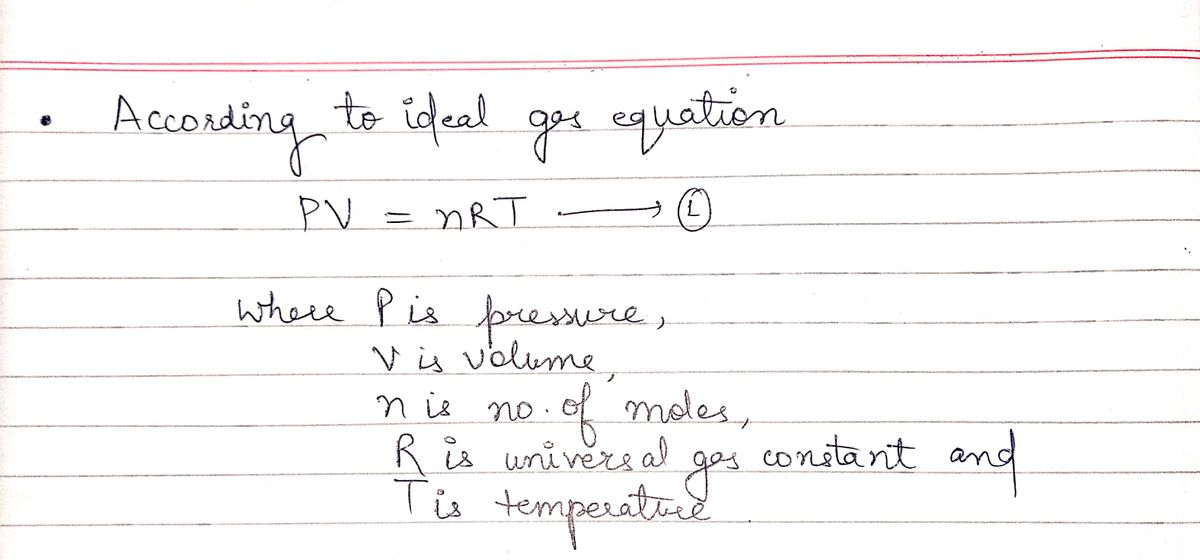 • According to ideal gas equation
PV = nRT ⟶ ①
where P is pressure,
V is volume,
n is no. of moles,
R is universal gas constant and
T is temperature